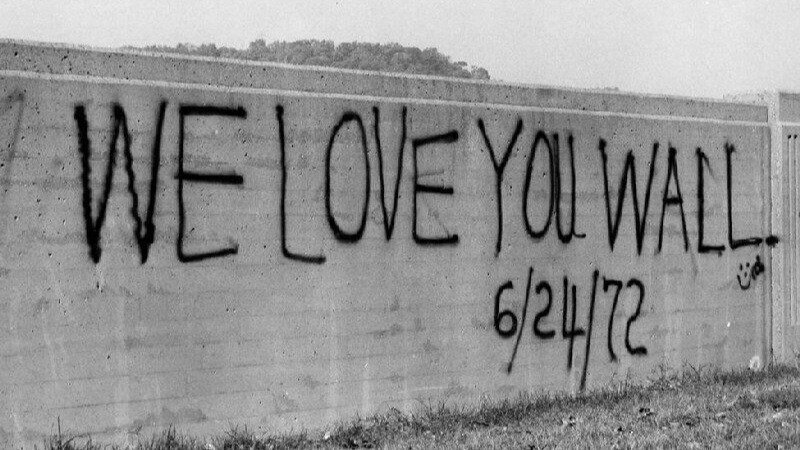 WE LOVE YOU WALL.
6/24/72